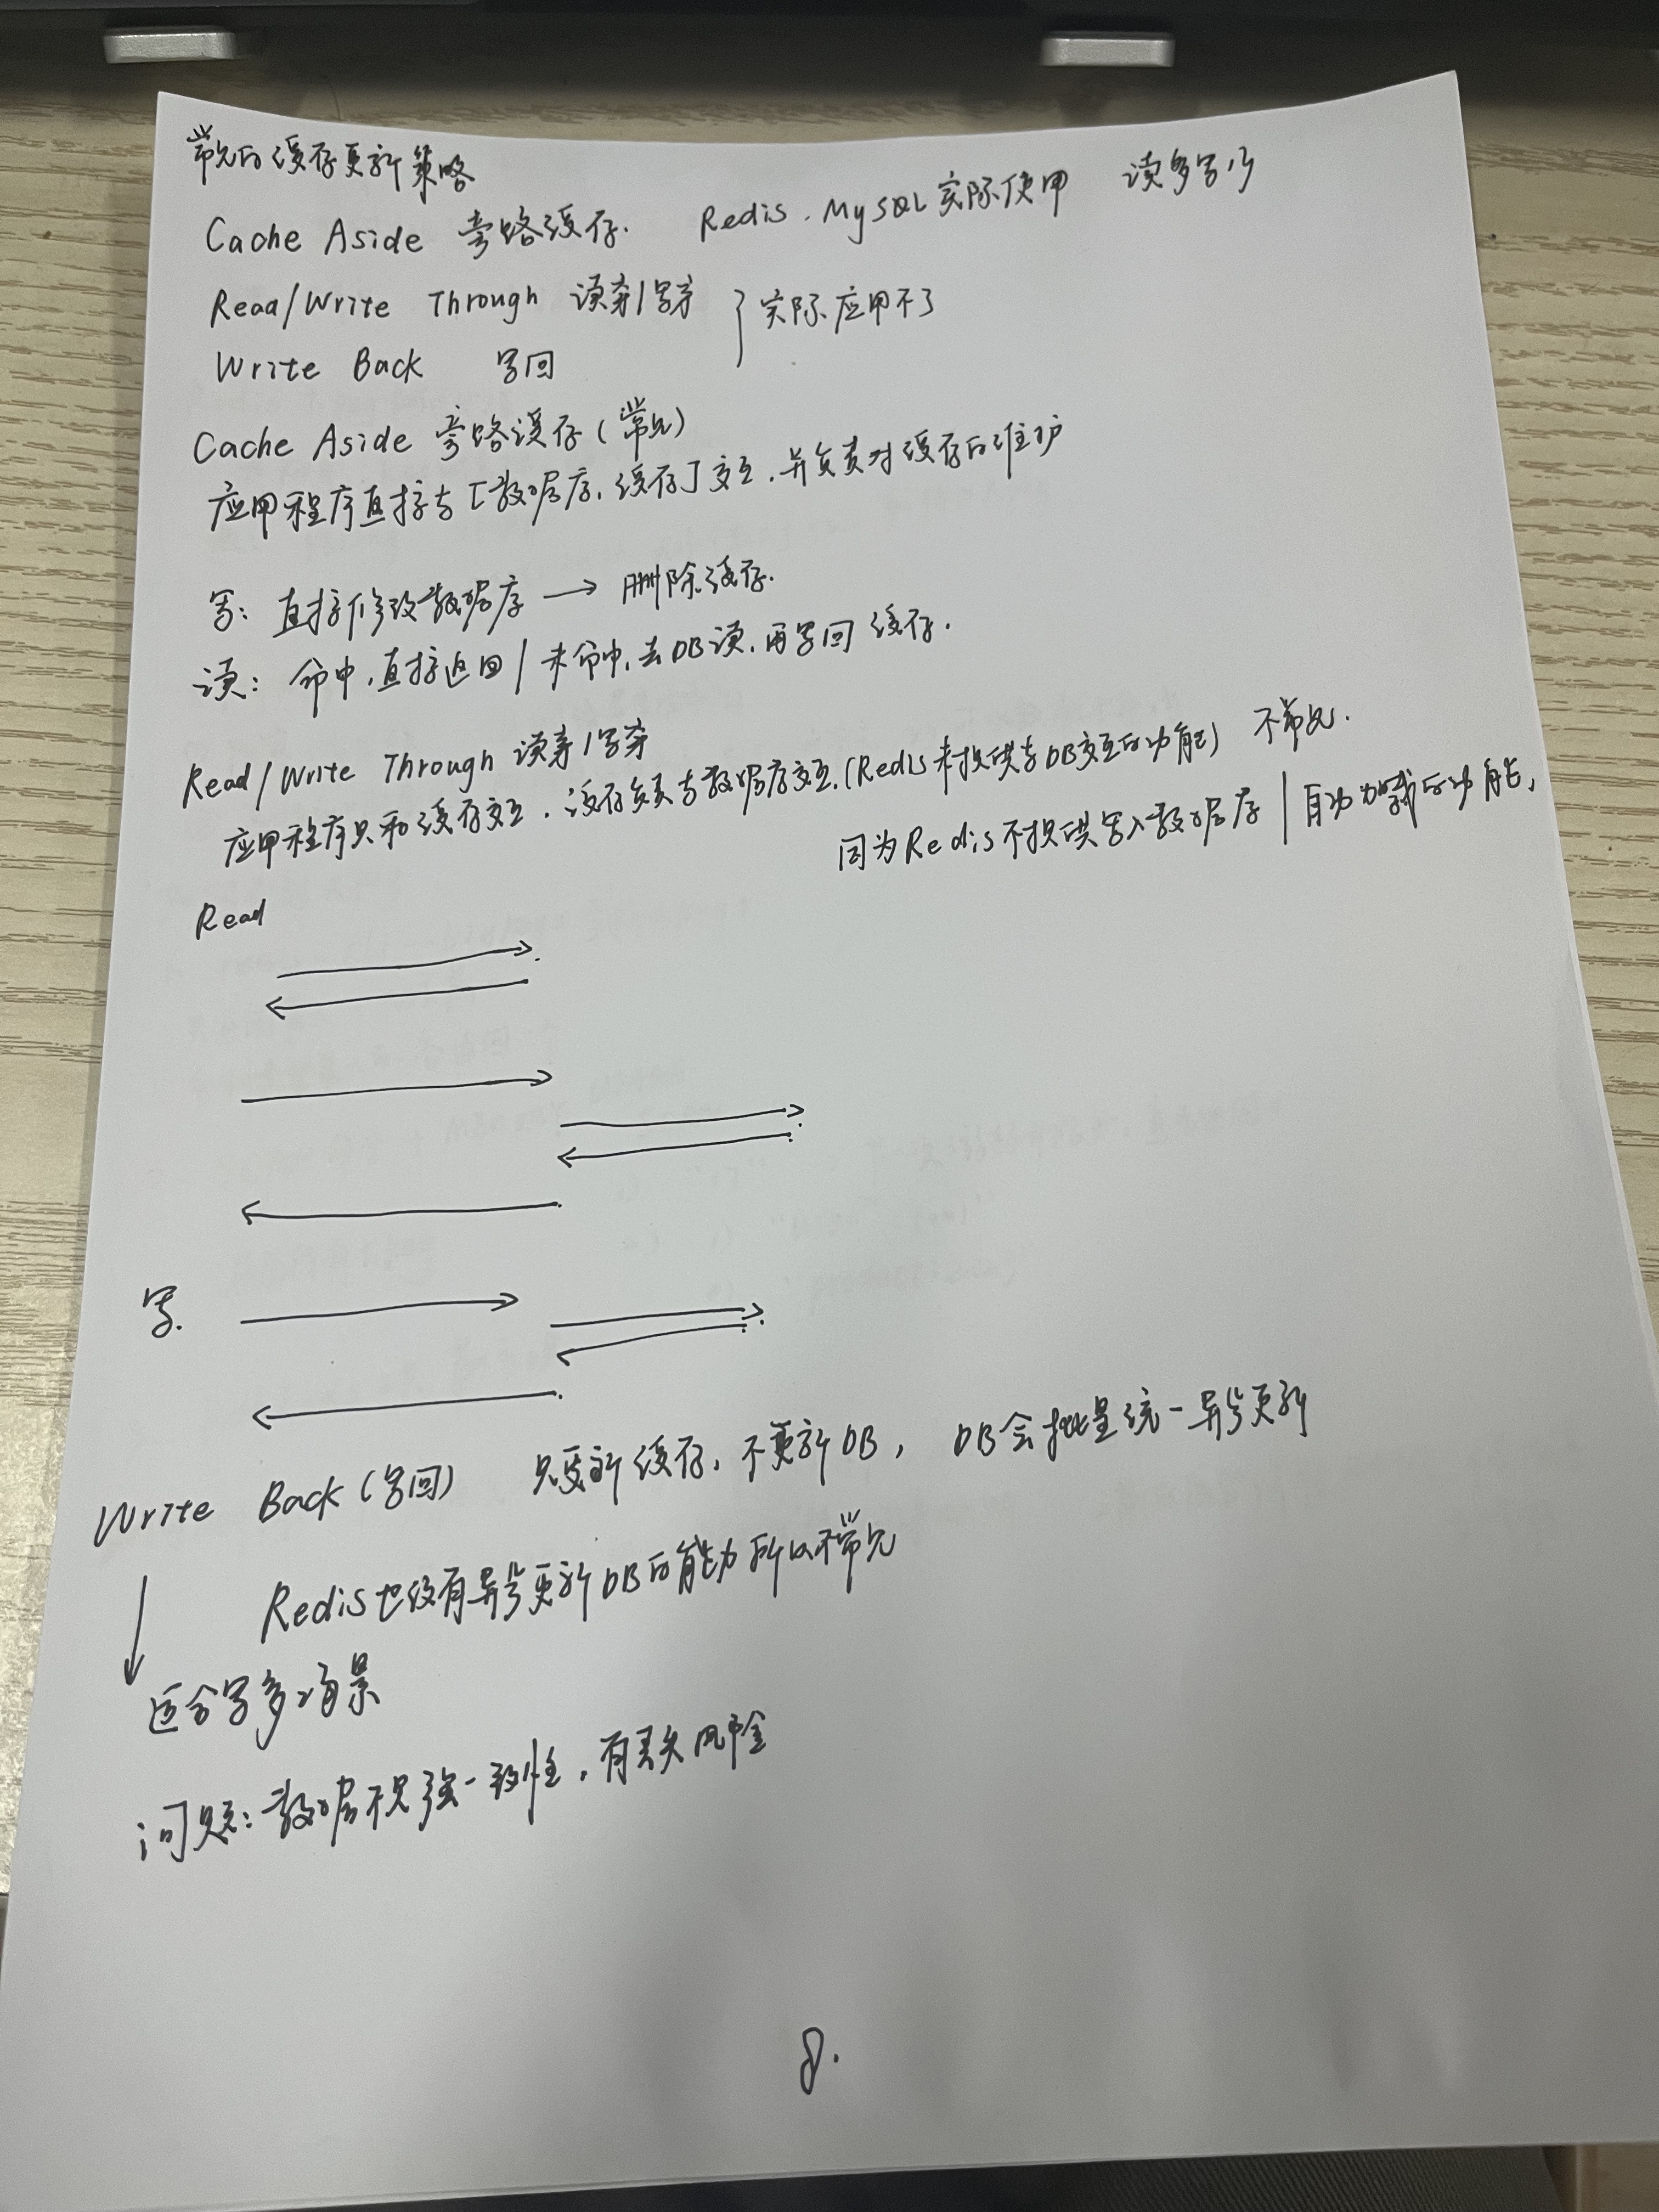 常见的缓存更新策略
Cache Aside 旁路缓存. Redis.MySQL实际使用 读多写少
Read/Write Through 读穿/写穿 } 实际应用不了
Write Back 写回
Cache Aside 旁路缓存(常见)
应用程序直接与[数据库,缓存]交互.并负责对缓存的维护
写: 直接修改数据库 → 删除缓存.
读: 命中,直接返回/未命中,去DB读,再写回缓存.
Read/Write Through 读穿/写穿
应用程序只和缓存交互.缓存负责与数据库交互.(Redis未提供与DB交互的功能) 不常见.
因为Redis不提供写入数据库|自动加载的功能,
Read
写.
Write Back(写回) 只更新缓存,不更新DB, DB会批量统一异步更新
Redis也没有异步更新DB的能力所以不常见
适合写多场景
问题:数据不是强一致性,有丢失风险
8.